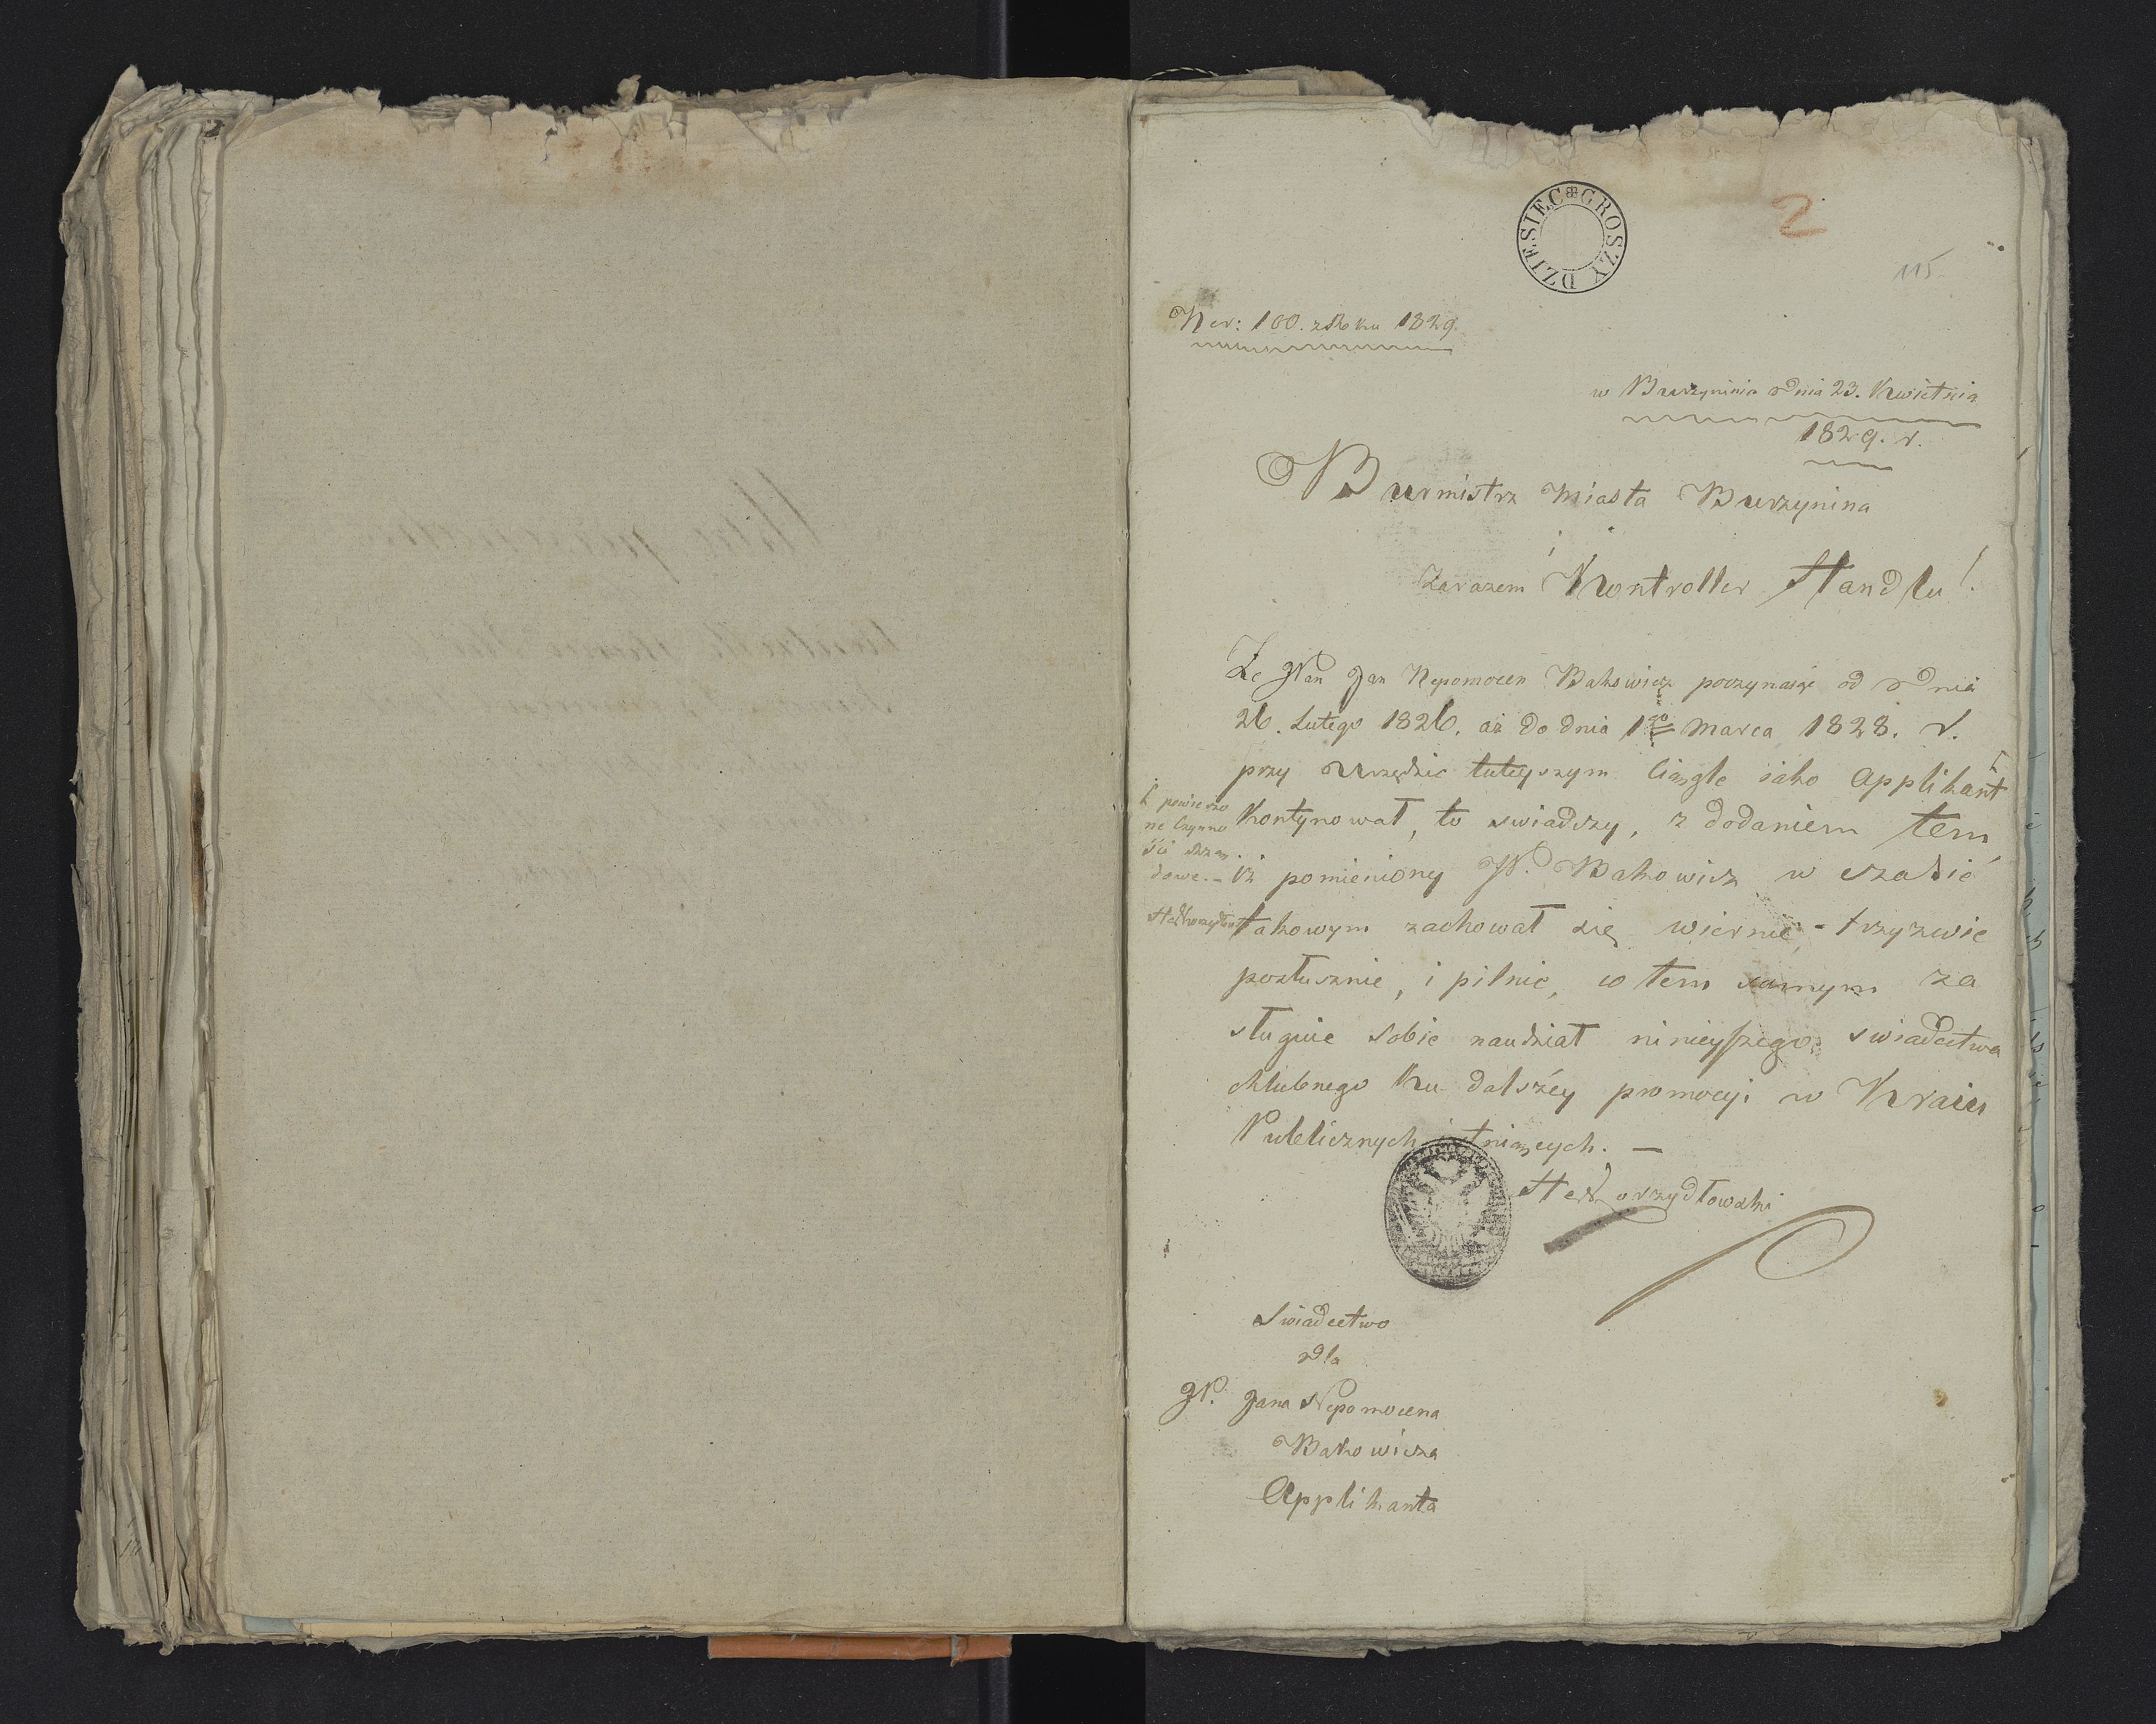 DZIESIEC GROSZY
2
115
Ner: 100. z Roku 1829.
w Burzyninie Dnia 23. Kwietnia
1829. r.
Burmistrz Miasta Burzynina
Zarazem Kontroller Handlu!
Że Pan Jan Nepomocen Bakowicz poczynaiąc od Dnia
26. Lutego 1826. aż do dnia 1go Marca 1828. r.
przy Urzędzie tuteyszym Ciągle iako Applikant
kontynował, to swiadczy, z dodaniem tem,
iż pomieniony P. Bakowicz w czasie
takowym zachował się wiernie, - trzyzwie
posłusznie, i pilnie, co tem samym za
sługuie sobie naudział ninieyszego swiadectwa
chlubnego ku dalszey promocyi w Kraiu
Publicznych istniących. —
powierzo
ne Czynno
ści
dowe. -
Swiadectwo
Dla
P. Jana Nepomocena
Bakowicza
Applikanta